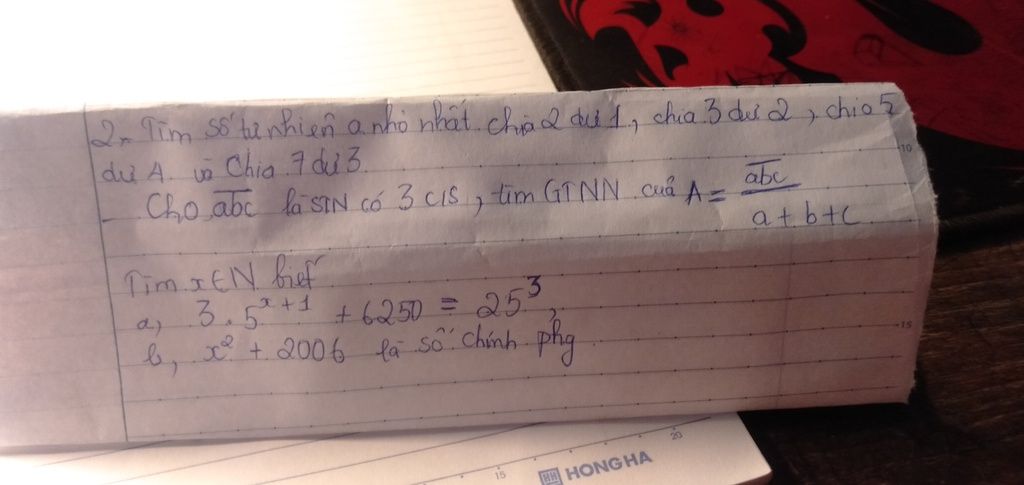 2. Tìm số tự nhiên a nhỏ nhất chia 2 dư 1, chia 3 dư 2, chia 5
dư 4 và chia 7 dư 3
- Cho abc là STN có 3 c/s, tìm GTNN của A = abc / a + b + c
Tìm x ∈ N biết
a, 3 . 5^{x+1} + 6250 = 25^3,
b, x² + 2006 là số chính phg
10
15
15
20
HH HONG HA